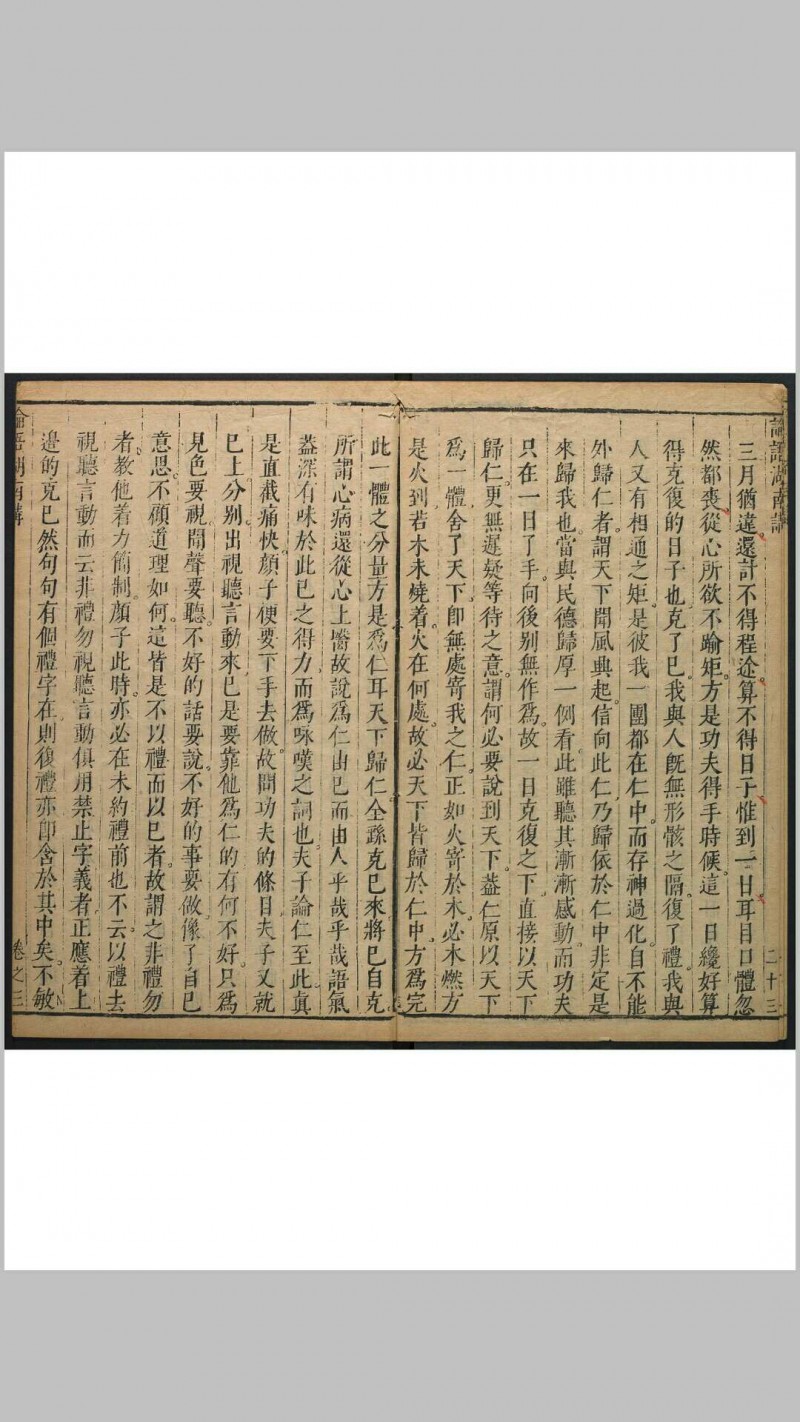 論語湖南講
二十三
三月猶違還計不得程途算不得日子惟到一日耳目口體忽
然都喪從心所欲不踰矩方是功夫得手時候這一日纔好算
得克復的日子也克了巳我與人既無形骸之隔復了禮我與
人又有相通之矩是彼我一團都在仁中而存神過化自不能
外歸仁者謂天下聞風興起信向此仁乃歸依於仁中非定是
來歸我也當與民德歸厚一例看此雖聽其漸漸感動而功夫
只在一日了手向後別無作爲故一日克復之下直接以天下
歸仁更無遲疑等待之意謂何必要說到天下葢仁原以天下
爲一體舍了天下即無處寄我之仁正如火寄於木必木燃方
是火到若木未燒着火在何處故必天下皆歸於仁中方爲完
此一體之分量方是爲仁耳天下歸仁全孫克巳來將巳自克
所謂心病還從心上醫故說爲仁由巳而由人乎哉乎哉語氣
葢深有味於此巳之得力而爲咏嘆之詞也夫子論仁至此眞
是直截痛快顔子便要下手去做故問功夫的條目夫子又就
巳上分別出視聽言動來巳是要靠他爲仁的有何不好只爲
見色要視聞聲要聽不好的話要說不好的事要做像了自巳
意思不顧道理如何這皆是不以禮而以巳者故謂之非禮勿
者教他着方簡制顔子此時亦必在未約禮前也不云以禮去
視聽言動而云非禮勿視聽言動俱用禁止字義者正應着上
邉的克巳然句句有個禮字在則復禮亦即舍於其中矣不敏
論語湖南講
卷之三